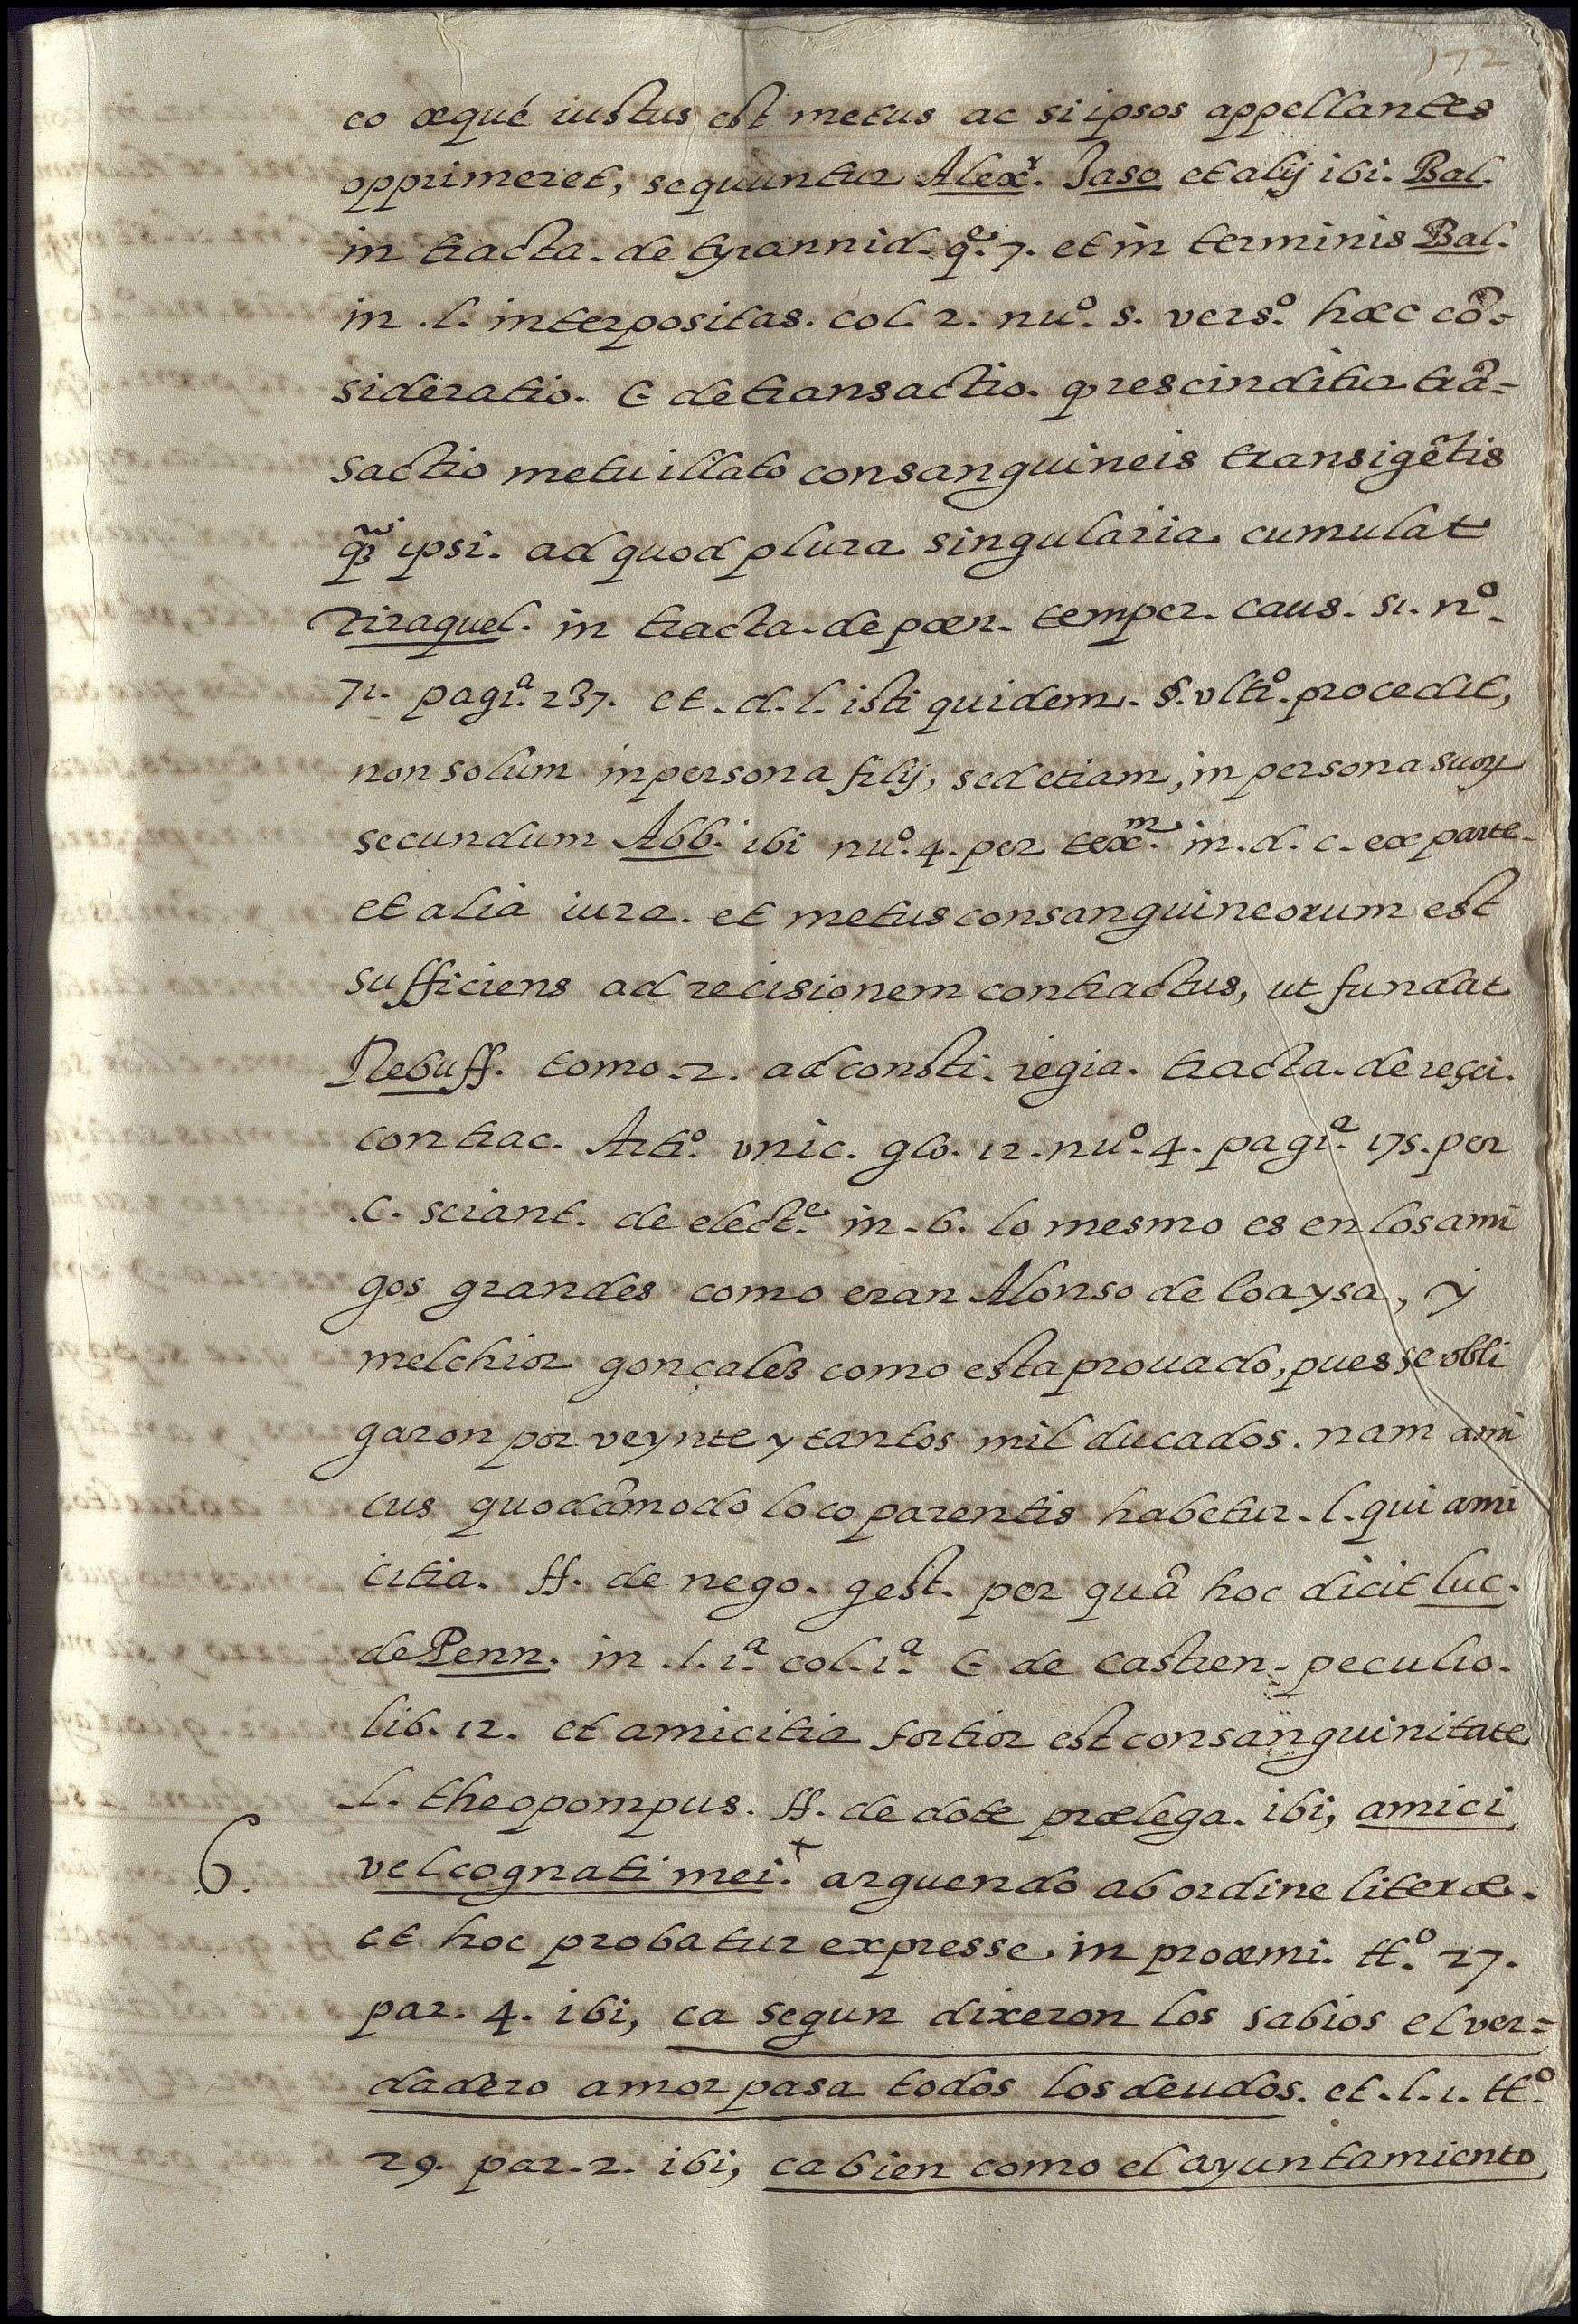 172
eo æqué iustus est metus ac si ipsos appellantes
opprimeret, sequuntur Alexʳ. Jaso et alij ibi. Bal.
in tracta. de tyrannid. qᵉ. 7. et in terminis Bal.
in .l. interpositas. col. 2. nuº. 5. versº. hæc cõ-
sideratio. C de transactio. q rescinditur trã-
sactio metu illato consanguineis transigẽtis
ipsi. ad quod plura singularia cumulat
Tiraquel. in tracta. de pœn. temper. caus. 51. nº.
71. pagiª. 237. et. d. l. isti quidem. §. vltiº. procedit,
non solum in persona filij, sed etiam, in persona suoꝝ
secundum Abb. ibi nuº. 4. per texᵐ. in. d. c. ex parte.
et alia iura. et metus consanguineorum est
sufficiens ad recisionem contractus, ut fundat
Rebuff. tomo. 2. ad consti. regia. tracta. de resci.
contrac. Artiº. vnic. glo. 12. nuº. 4. pagiª. 175. per
.c. sciant. de electᵉ. in. 6. lo mesmo es en los ami
gos grandes como eran Alonso de loaysa, y
melchior gonçales como esta prouado, pues se obli
garon por veynte y tantos mil ducados. nam ami
cus quodãmodo loco parentis habetur. l. qui ami
citia. ff. de nego. gest. per quã hoc dicit luc.
de Penn. in .l. 1ª. col. 1ª. C de castren. peculio.
lib. 12. et amicitia fortior est consanguinitate
l. theopompus. ff. de dote prælega. ibi, amici
6. vel cognati mei.⁺ arguendo ab ordine literæ.
et hoc probatur expresse in proœmi. ttº. 27.
par. 4. ibi, ca segun dixeron los sabios el ver-
dadero amor pasa todos los deudos. et. l. 1. ttº.
29. par. 2. ibi, ca bien como el ayuntamiento